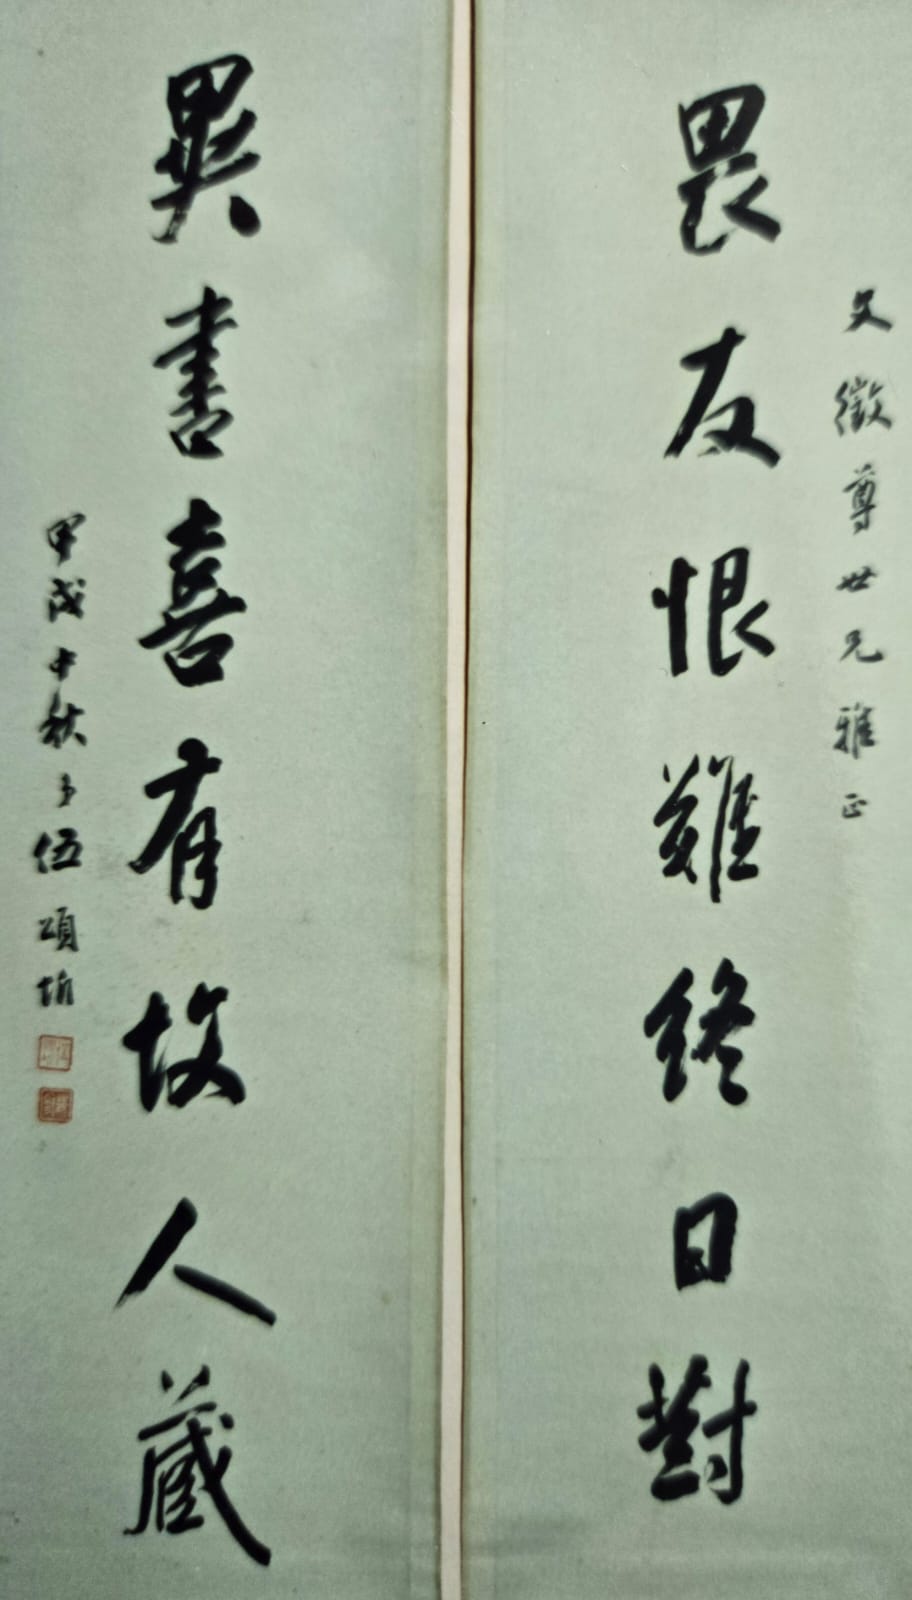 文徵尊世兄雅正
畏友恨難終日對
異書喜有故人藏
甲戌中秋 伍頌圻